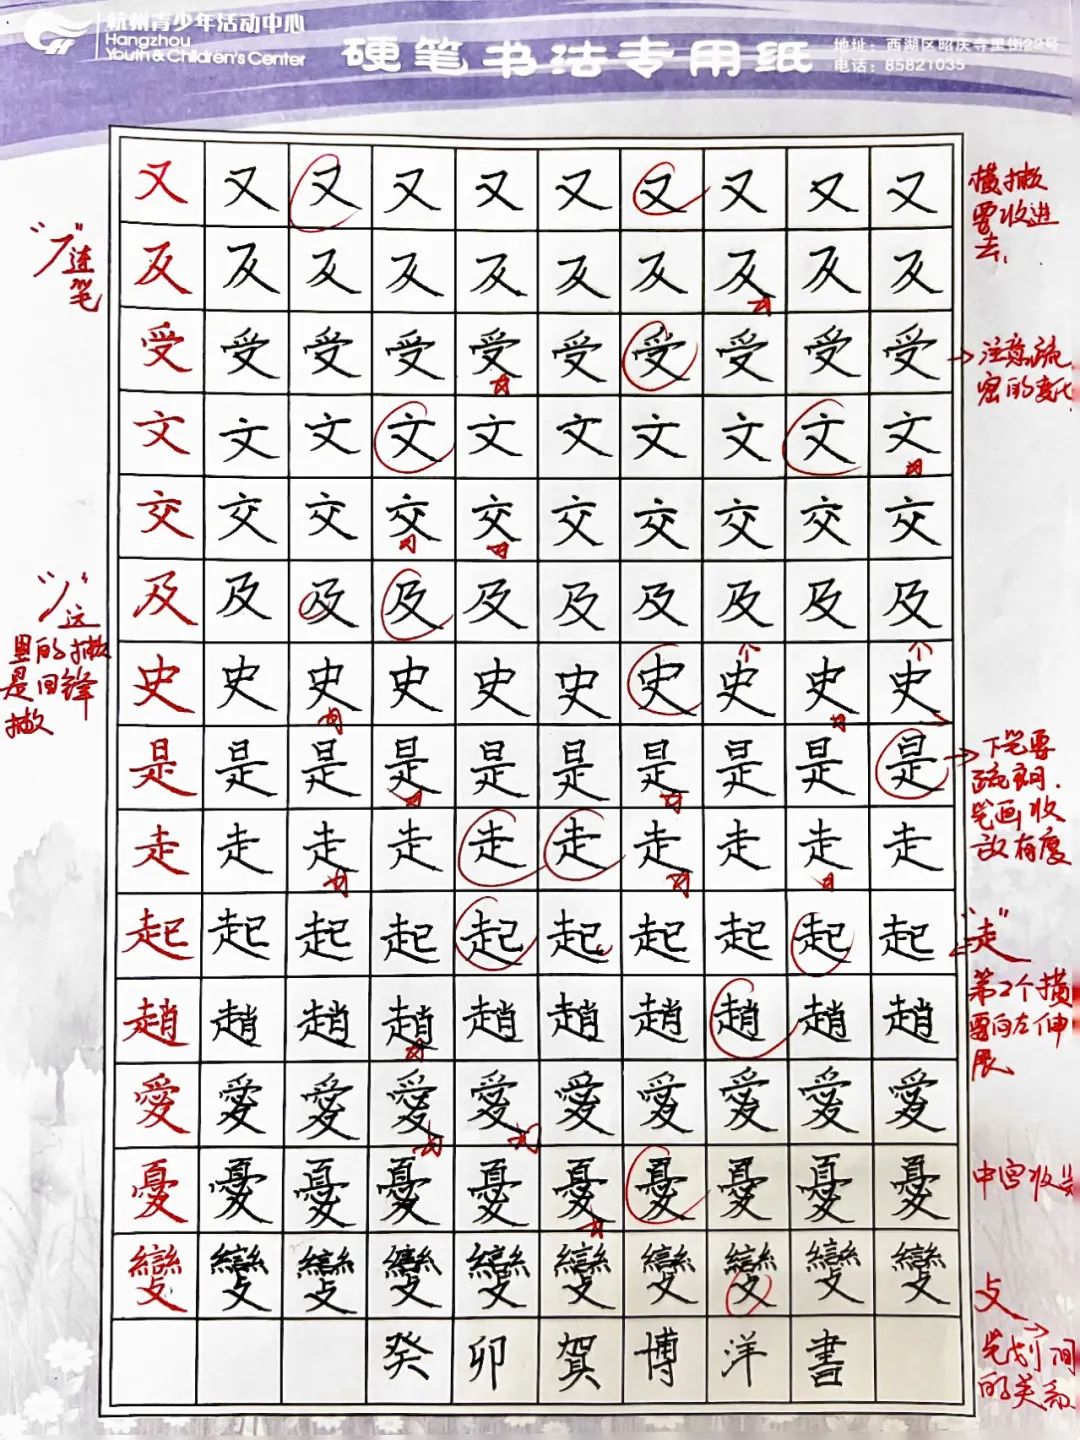 杭州青少年活动中心
Hangzhou
Youth & Children's Center
硬笔书法专用纸
地址：西湖区昭庆寺里街22号
电话：85821035
又 又 又 又 又 又 又 又 又 又
横撇要收进去
反 反 反 反 反 反 反 反 反 反
"丆"连笔
受 受 受 受 受 受 受 受 受 受
注意疏密的变化
文 文 文 文 文 文 文 文 文 文
交 交 交 交 交 交 交 交 交 交
及 及 及 及 及 及 及 及 及 及
"丿"这里的撇是回锋撇
史 史 史 史 史 史 史 史 史 史
是 是 是 是 是 是 是 是 是 是
下笔要
笔画收放有度
走 走 走 走 走 走 走 走 走 走
起 起 起 起 起 起 起 起 起 起
"走"
第2个横要向左伸展
趙 趙 趙 趙 趙 趙 趙 趙 趙 趙
愛 愛 愛 愛 愛 愛 愛 愛 愛 愛
憂 憂 憂 憂 憂 憂 憂 憂 憂 憂
中宫收紧
變 變 變 變 變 變 變 變 變 變
攵
笔划间的关系
癸 卯 賀 博 洋 書